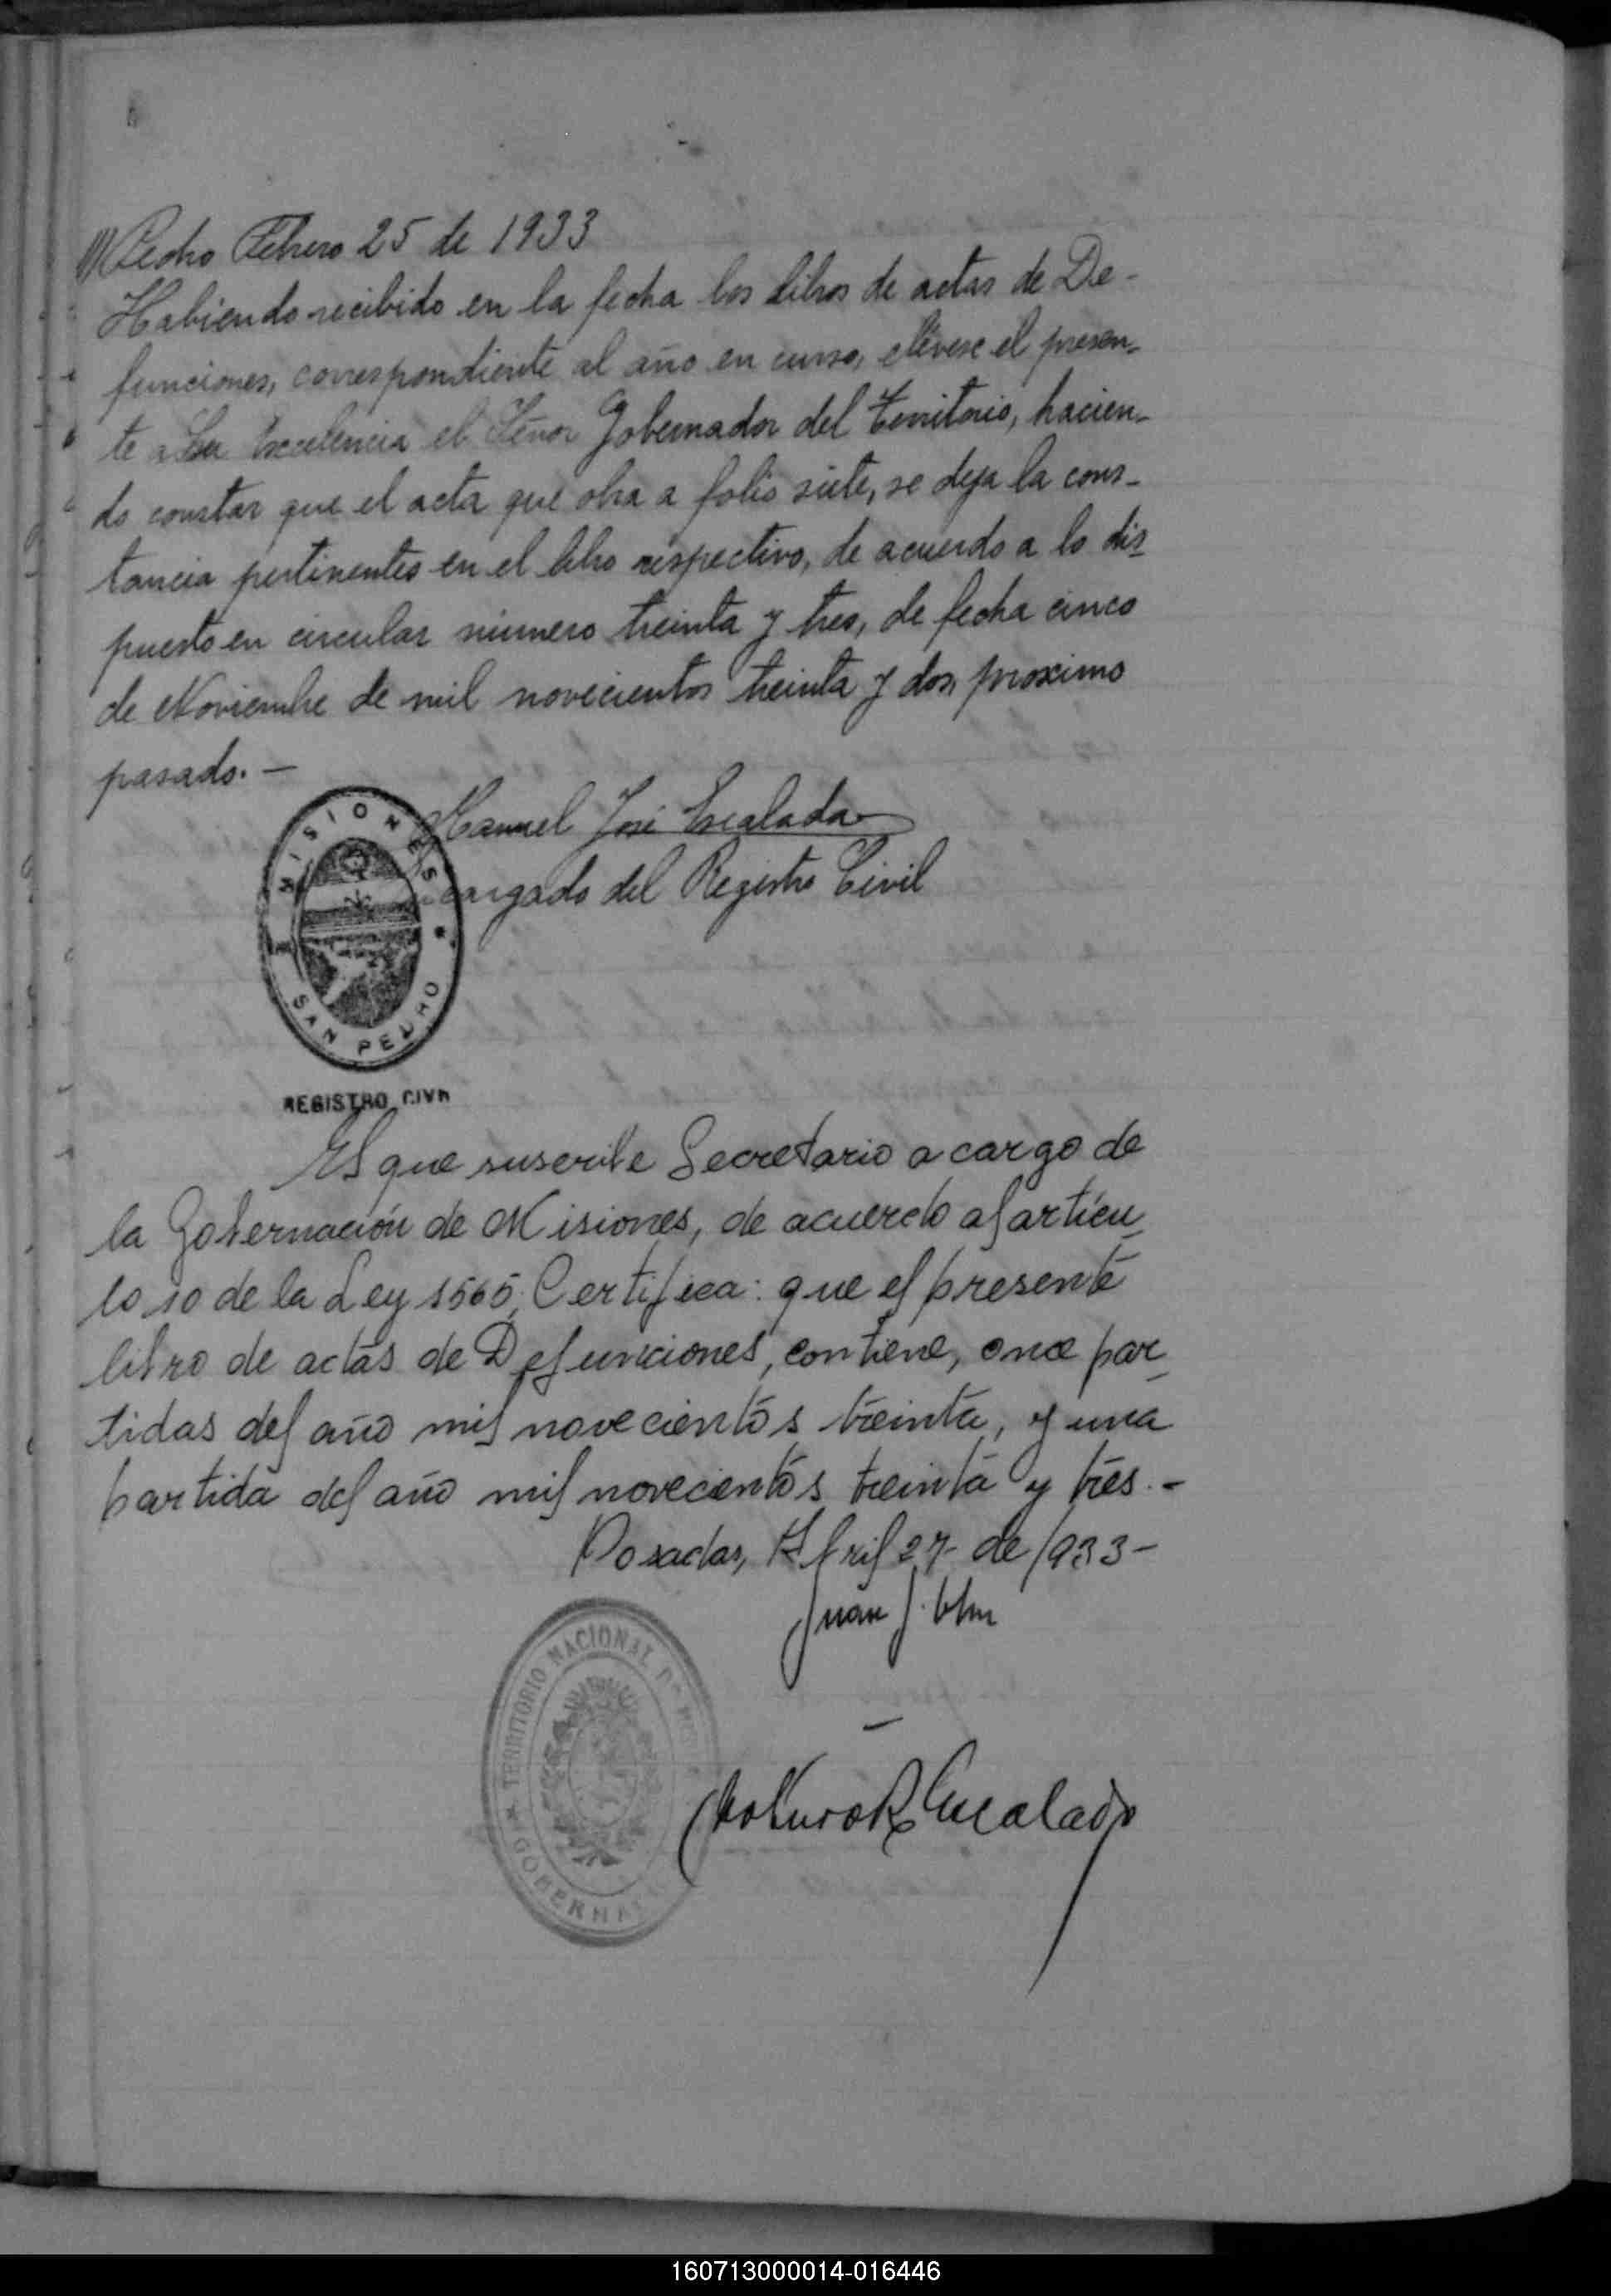 Pedro Febrero 25 de 1933
Habiendo recibido en la fecha los libros de actas de De-
funciones, correspondiente al año en curso, elévese el presen-
te a Su Excelencia el Señor Gobernador del Territorio, hacien-
do constar que el acta que obra a folio siete, se deja la cons-
tancia pertinentes en el libro respectivo, de acuerdo a lo dis-
puesto en circular número treinta y tres, de fecha cinco
de Noviembre de mil novecientos treinta y dos, proximo
pasado. -
Manuel José Escalada
Encargado del Registro Civil
MISIONES
SAN PEDRO
REGISTRO CIVIL
El que suscribe Secretario a cargo de
la Gobernación de Misiones, de acuerdo al artícu-
lo 10 de la Ley 1565, Certifica: que el presente
libro de actas de Defunciones, contiene, once par-
tidas del año mil novecientos treinta, y una
partida del año mil novecientos treinta y tres. -
Posadas, Abril 27 de 1933 -
Juan J.
TERRITORIO NACIONAL DE
GOBERNA
Escalada
160713000014-016446